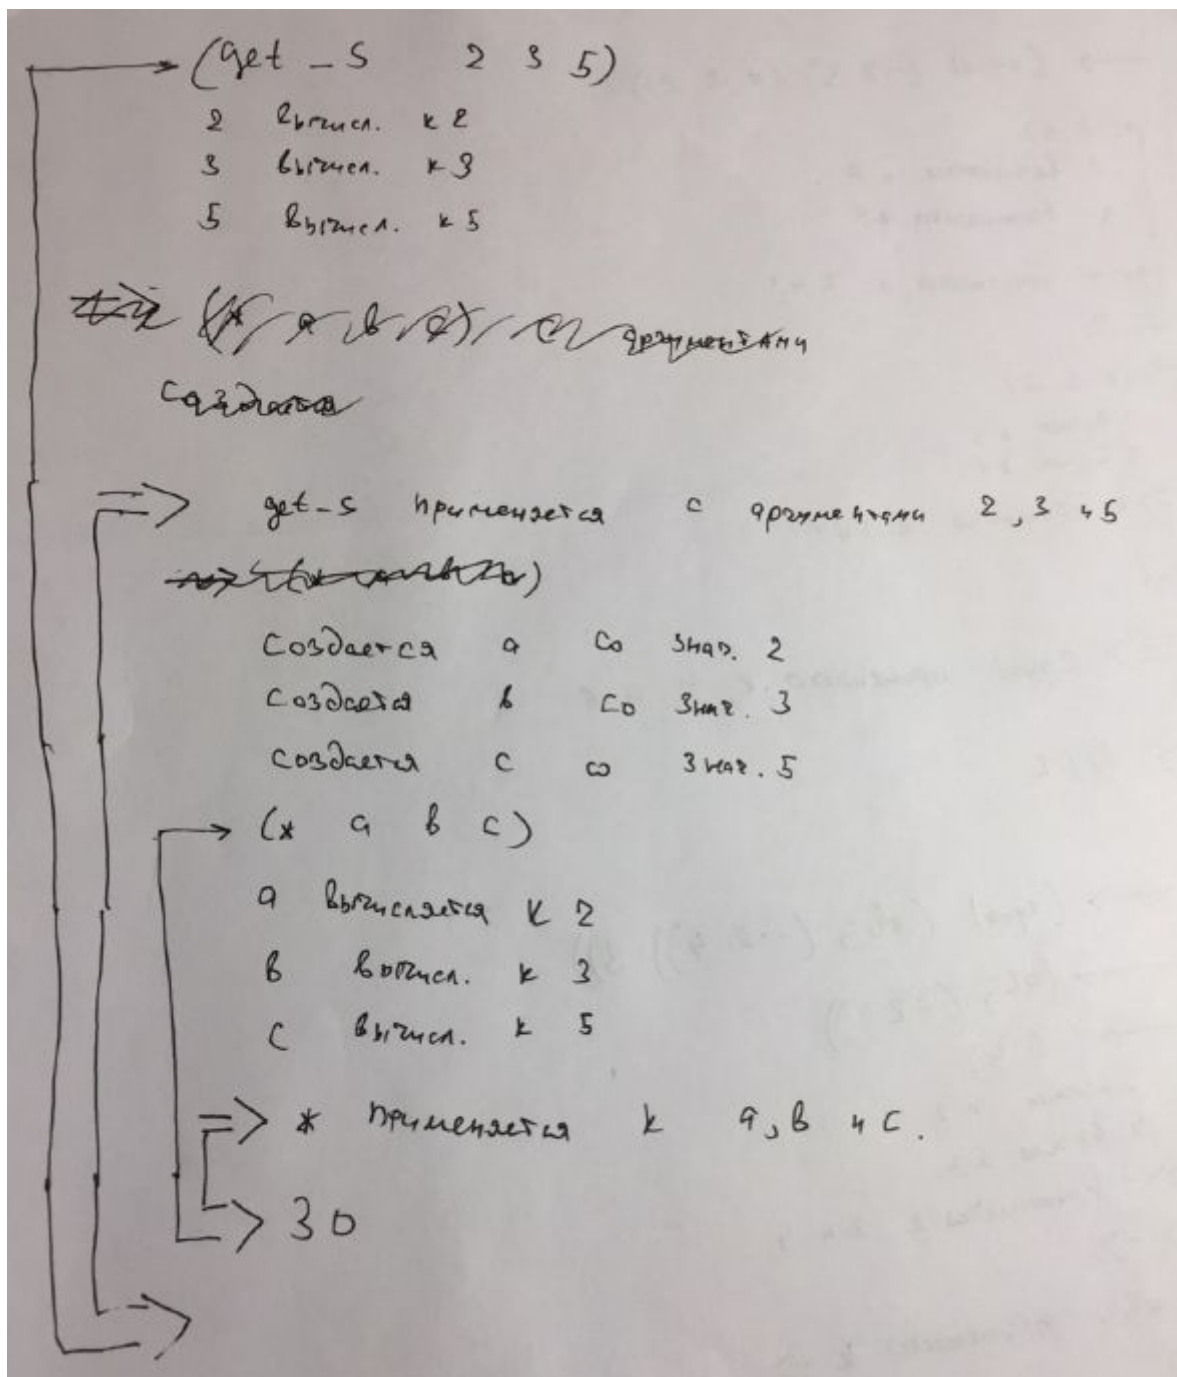 (get_s 2 3 5)
2 вычисл. к 2
3 вычисл. к 3
5 вычисл. к 5
(* а в с) с аргументами
создается
get_s применяется с аргументами 2, 3 и 5
создается а со знач. 2
создается в со знач. 3
создается с со знач. 5
(* а в с)
а вычисляется к 2
в вычисл. к 3
с вычисл. к 5
=> * применяется к а, в и с.
=> 30